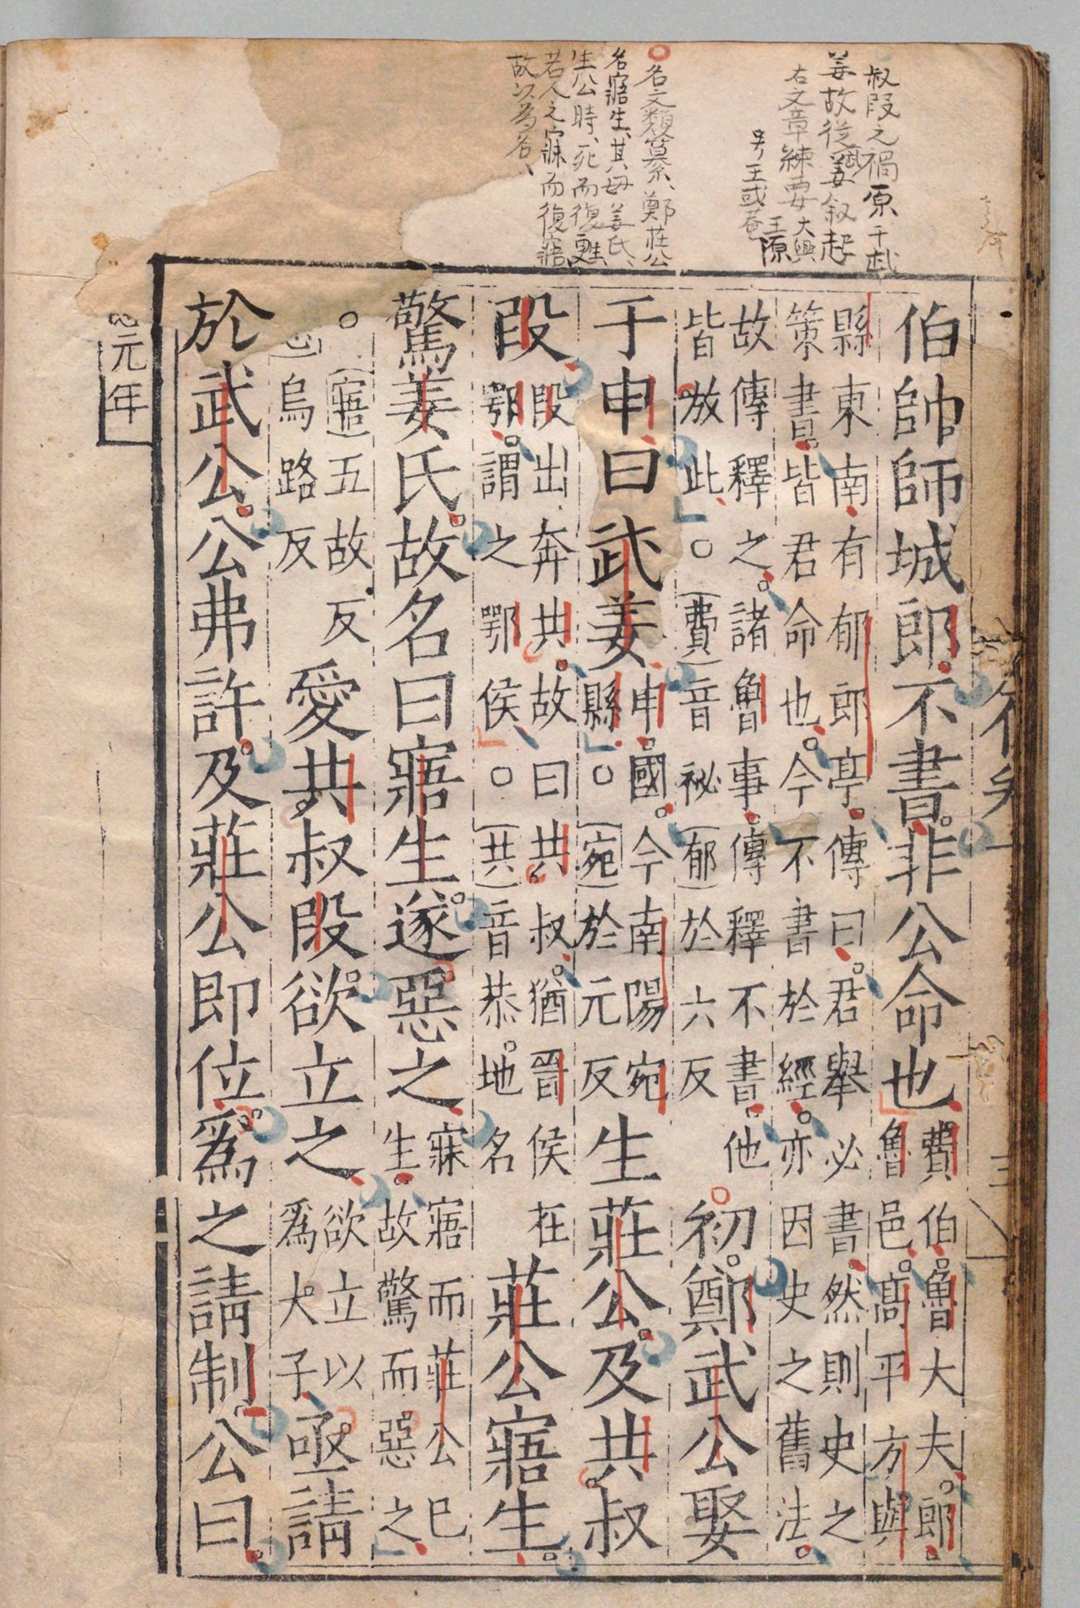 叔段之禍原于武
姜故從武姜叙起
右文章練要大興王源
号王或菴
名文類纂、鄭莊公
名寤生、其母姜氏、
生公時、死而復甦、
若人之寐而復寤
故以為名、
伯帥師城郎。不書。非公命也。
費伯。魯大夫。郎。
魯邑。高平方與
縣東南有郁郎亭。傳曰。君舉必書。然則史之
策書。皆君命也。今不書於經。亦因史之舊法。
故傳釋之。諸魯事。傳釋不書。他
皆放此。○(費)音祕(郁)於六反
初。鄭武公娶
于申曰武姜
申。國。今南陽宛
縣○(宛)於元反
生莊公。及共叔
段。
段出奔共。故曰共叔。猶晉侯在
鄂。謂之鄂侯○(共)音恭。地名
莊公寤生。
驚姜氏。故名曰寤生。遂惡之
寐寤而莊公已
生。故驚而惡之
○(寤)五故反
烏路反
愛共叔段。欲立之
欲立以
爲大子
亟請
於武公。公弗許。及莊公即位。爲之請制。公曰。
元年